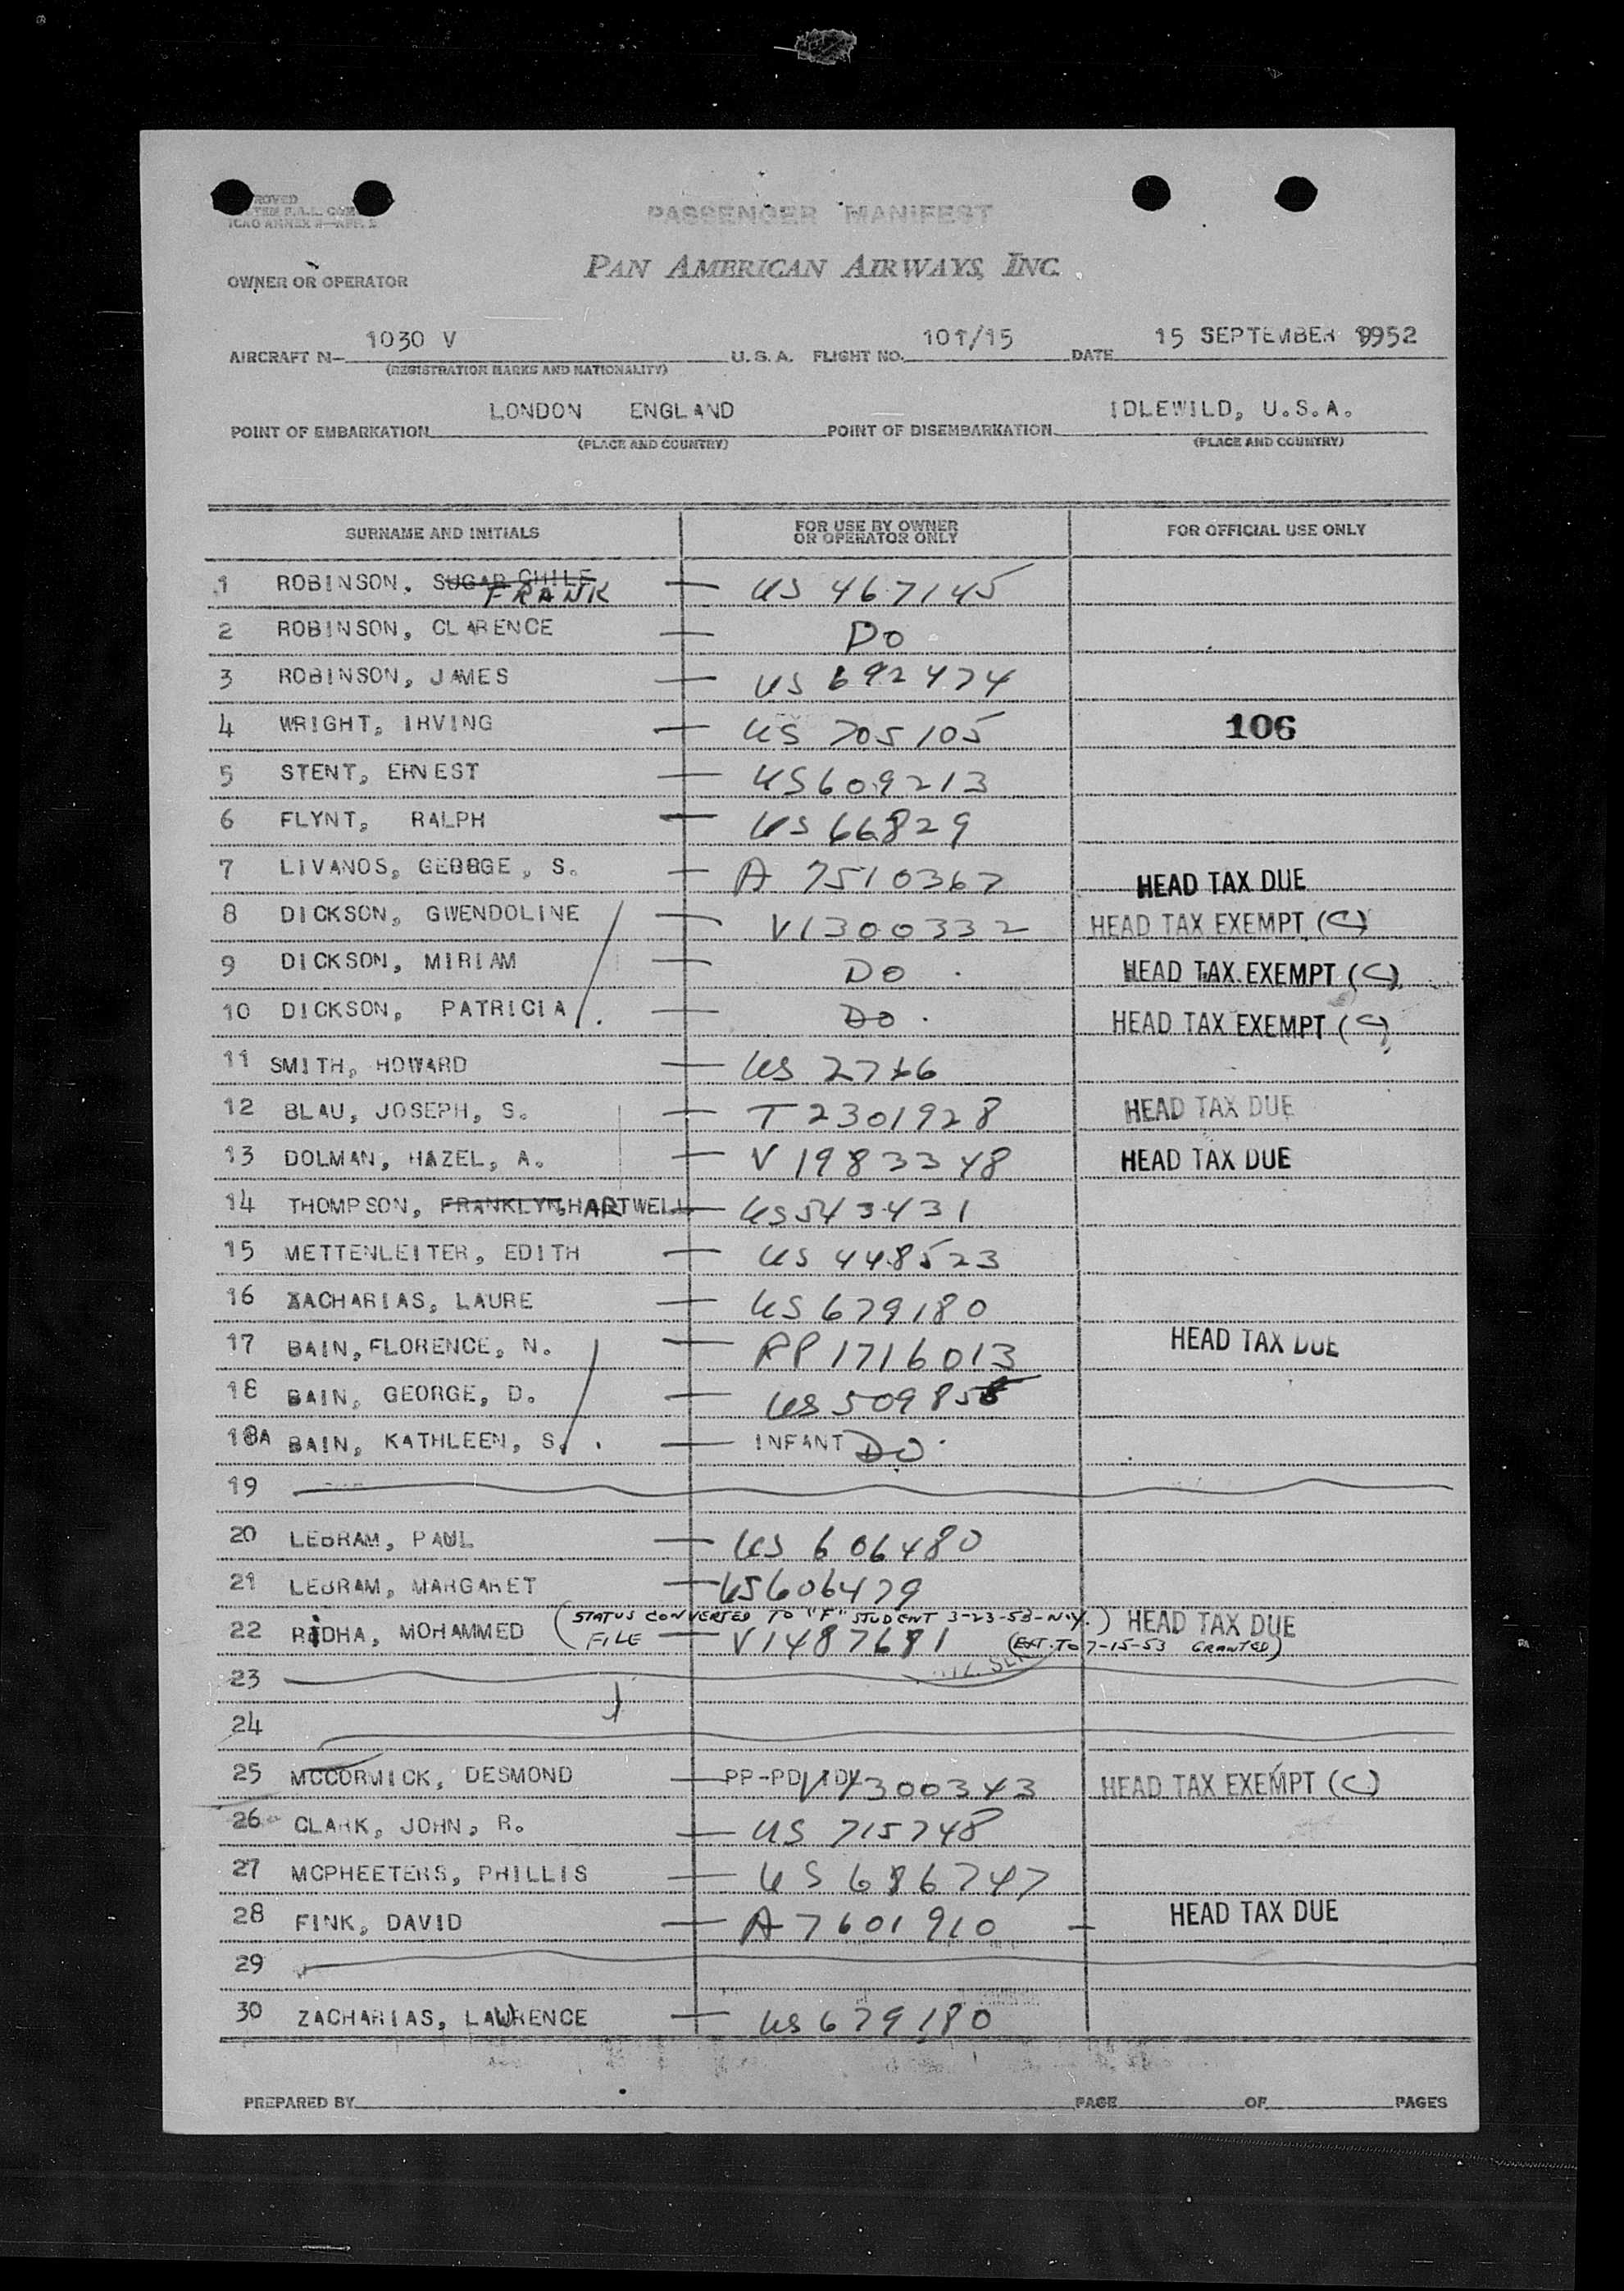 PASSENGER MANIFEST
ICAO ANNEX
PAN AMERICAN AIRWAYS, INC.
OWNER OR OPERATOR
AIRCRAFT N— 1030 V U.S.A. FLIGHT NO. 101/15 DATE 15 SEPTEMBER 1952
(REGISTRATION MARKS AND NATIONALITY)
POINT OF EMBARKATION LONDON ENGLAND POINT OF DISEMBARKATION IDLEWILD, U.S.A.
(PLACE AND COUNTRY) (PLACE AND COUNTRY)
SURNAME AND INITIALS FOR USE BY OWNER OR OPERATOR ONLY FOR OFFICIAL USE ONLY
1 ROBINSON, SUGAR CHILE FRANK — US 467145
2 ROBINSON, CLARENCE — DO
3 ROBINSON, JAMES — US 692474
4 WRIGHT, IRVING — US 705105 106
5 STENT, ERNEST — US 609213
6 FLYNT, RALPH — US 66829
7 LIVANOS, GEORGE, S. — A 7510367 HEAD TAX DUE
8 DICKSON, GWENDOLINE — V1300332 HEAD TAX EXEMPT (C)
9 DICKSON, MIRIAM — DO . HEAD TAX EXEMPT (C)
10 DICKSON, PATRICIA — DO . HEAD TAX EXEMPT (C)
11 SMITH, HOWARD — US 2766
12 BLAU, JOSEPH, S. — T 2301928 HEAD TAX DUE
13 DOLMAN, HAZEL, A. — V 1983348 HEAD TAX DUE
14 THOMPSON, FRANKLYN, HARTWELL — US 543431
15 METTENLEITER, EDITH — US 448523
16 ZACHARIAS, LAURE — US 679180
17 BAIN, FLORENCE, N. — RP 1716013 HEAD TAX DUE
18 BAIN, GEORGE, D. — US 509855
18A BAIN, KATHLEEN, S. — INFANT DO
19
20 LEBRAM, PAUL — US 606480
21 LEBRAM, MARGARET — US606479
(STATUS CONVERTED TO "F" STUDENT 3-23-53-N.Y.)
22 RIDHA, MOHAMMED FILE — V1487681 HEAD TAX DUE
(EXT. TO 7-15-53 GRANTED)
23
24
25 MCCORMICK, DESMOND — PP-PD V1300343 HEAD TAX EXEMPT (C)
26 CLARK, JOHN, R. — US 715748
27 MCPHEETERS, PHILLIS — US 686747
28 FINK, DAVID — A 7601910 — HEAD TAX DUE
29
30 ZACHARIAS, LAWRENCE — US 679180
PREPARED BY PAGE OF PAGES